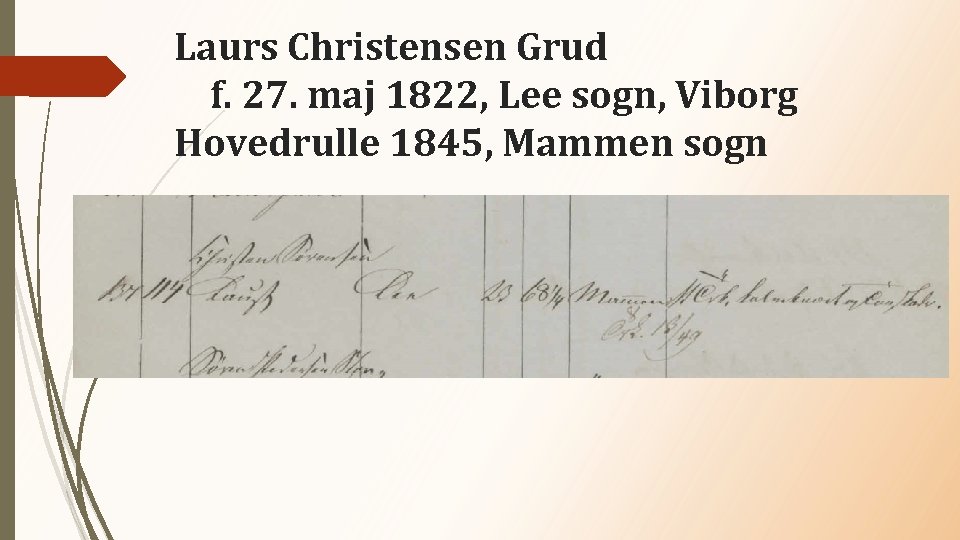 Laurs Christensen Grud
f. 27. maj 1822, Lee sogn, Viborg
Hovedrulle 1845, Mammen sogn
Christen Sørensen
137 114 Laust Lee 23 68¼ Mammen
13/49
Søren Pedersen